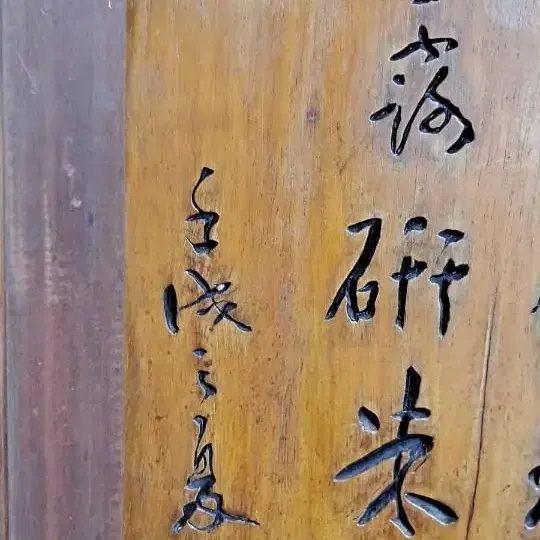 露硏朱
壬戌之夏